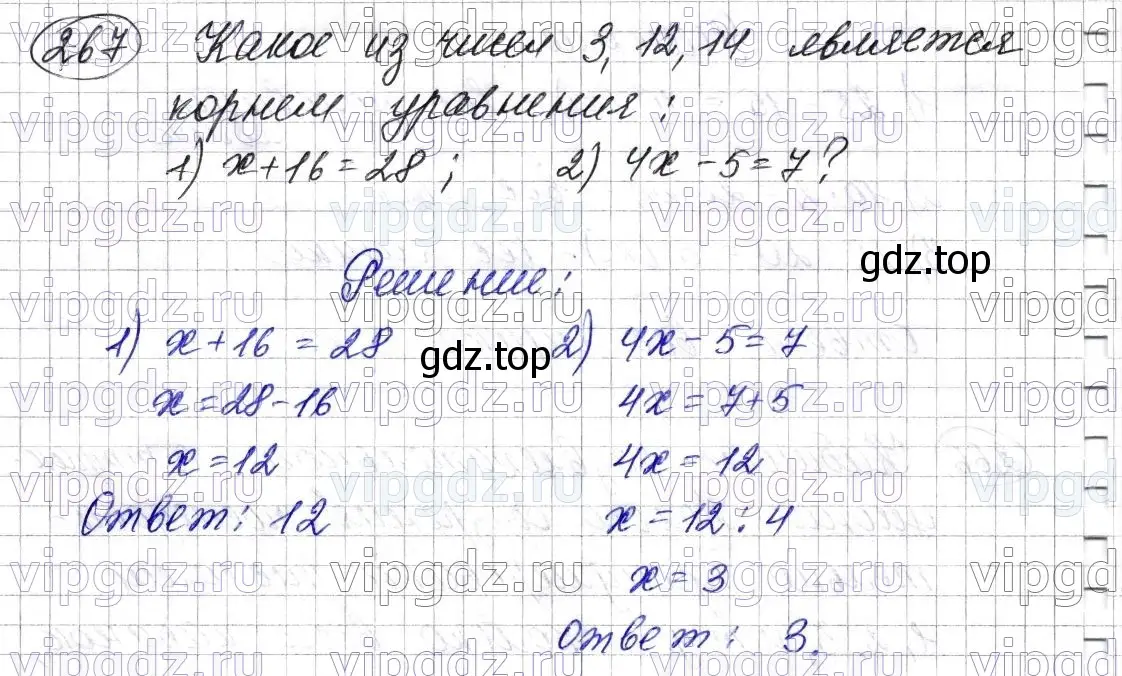 267 Какое из чисел 3, 12, 14 является
корнем уравнения:
1) x+16=28; 2) 4x-5=7?
Решение:
gdz.top
1) x+16 = 28
gdz.top
2) 4x-5=7
x=28-16
4x=7+5
x=12
4x=12
Ответ: 12
x=12:4
x=3
Ответ: 3.
vipgdz.ru